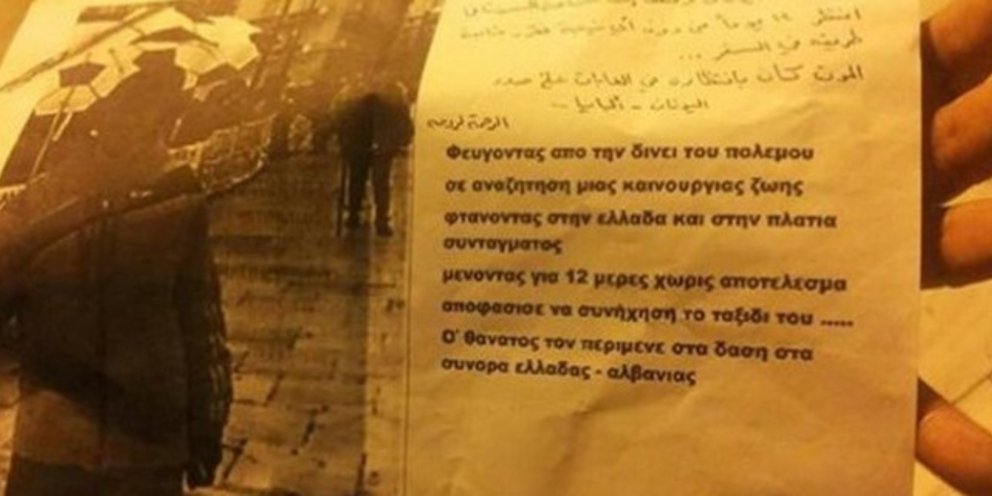 انتظر ١٢ يوماً من دون أي نتيجة فقرر متابعة
طريقه في السفر ...
الموت كان بانتظاره في الغابات على حدود
اليونان - ألبانيا -
الرحمة لروحه
Φευγοντας απο την δινει του πολεμου
σε αναζητηση μιας καινουργιας ζωης
φτανοντας στην ελλαδα και στην πλατια
συνταγματος
μενοντας για 12 μερες χωρις αποτελεσμα
αποφασισε να συνήχηση το ταξιδι του .....
Ο' θανατος τον περιμενε στα δαση στα
συνορα ελλαδας - αλβανιας